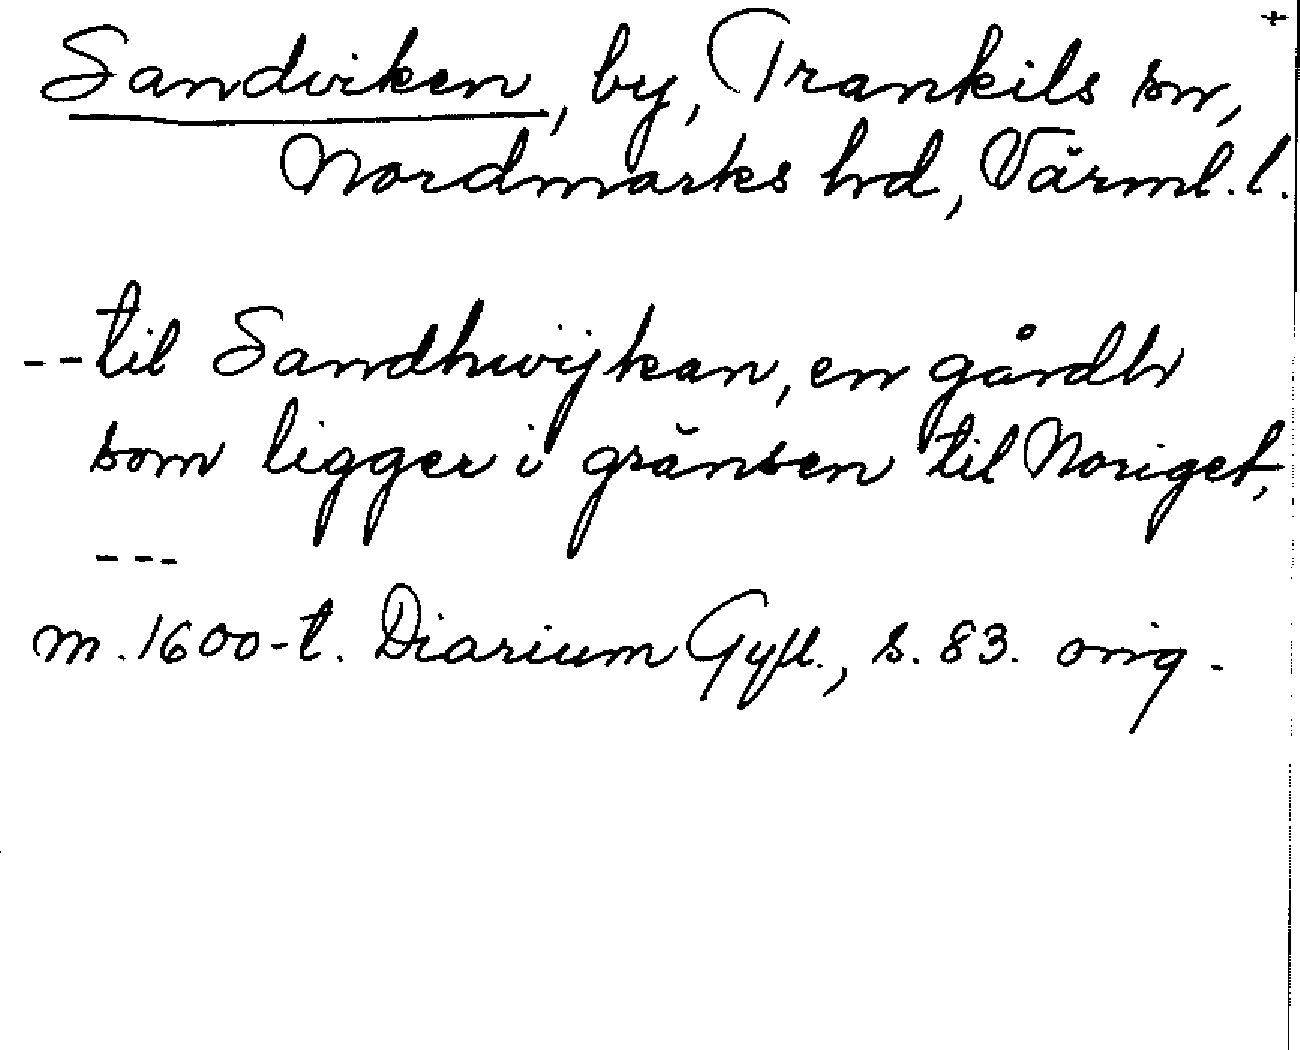 +
Sandviken, by, Trankils sn,
Nordmarks hd, Värml. l.
-- til Sandhwijkan, en gårdh
som ligger i gränsen til Noriget,
---
m. 1600-t. Diarium Gyll., s. 83. orig.